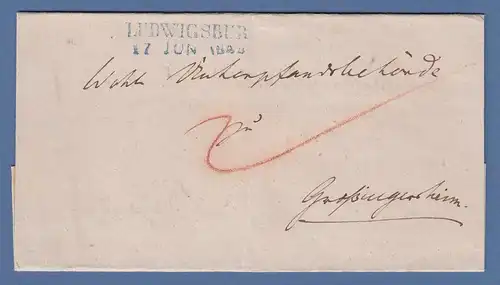 LUDWIGSBUR
17 JUN
Wohll. Unterpfandsbehörde
zu
Großingersheim.